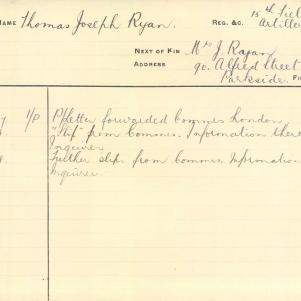 NAME Thomas Joseph Ryan. REG. &C. 15th Fiel
Artiller
NEXT OF KIN Mrs J. Ryan
ADDRESS 90. Alfred Street
Parkside. Fi
7 1/P P/letter forwarded Commrs London.
"Slip" from Commrs. Information there
Inquirer
Further slip. from Commrs. Information
Inquirer.